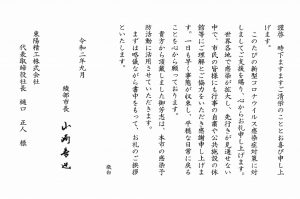 謹啓　時下ますますご清祥のこととお喜び申し上
げます。
このたびの新型コロナウイルス感染症対策に対
しましてご支援を賜り、心からお礼申し上げます。
世界各地で感染が拡大し、先行きが見通せない
中で、市民の皆様にも行事の自粛や公共施設の休
館等にご理解とご協力をいただき感謝申し上げま
す。一日も早く事態が収束し、平穏な日常に戻る
ことを心から願っております。
貴方から頂戴しました御芳志は、本市の感染予
防活動に活用させていただきます。
まずは略儀ながら書中をもって、お礼のご挨拶
といたします。
敬白
令和二年六月
綾部市長　山崎善也
東陽積工株式会社
代表取締役社長　樋口　正人　様